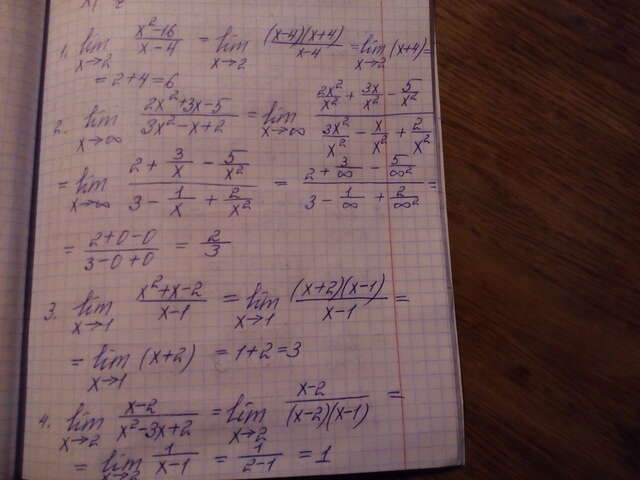 1. lim x→2 (x²-16)/(x-4) = lim x→2 ((x-4)(x+4))/(x-4) = lim x→2 (x+4) =
= 2+4=6
2. lim x→∞ (2x²+3x-5)/(3x²-x+2) = lim x→∞ (2x²/x² + 3x/x² - 5/x²)/(3x²/x² - x/x² + 2/x²)
= lim x→∞ (2 + 3/x - 5/x²)/(3 - 1/x + 2/x²) = (2 + 3/∞ - 5/∞²)/(3 - 1/∞ + 2/∞²) =
= (2+0-0)/(3-0+0) = 2/3
3. lim x→1 (x²+x-2)/(x-1) = lim x→1 ((x+2)(x-1))/(x-1) =
= lim x→1 (x+2) = 1+2=3
4. lim x→2 (x-2)/(x²-3x+2) = lim x→2 (x-2)/((x-2)(x-1)) =
= lim x→2 1/(x-1) = 1/(2-1) = 1